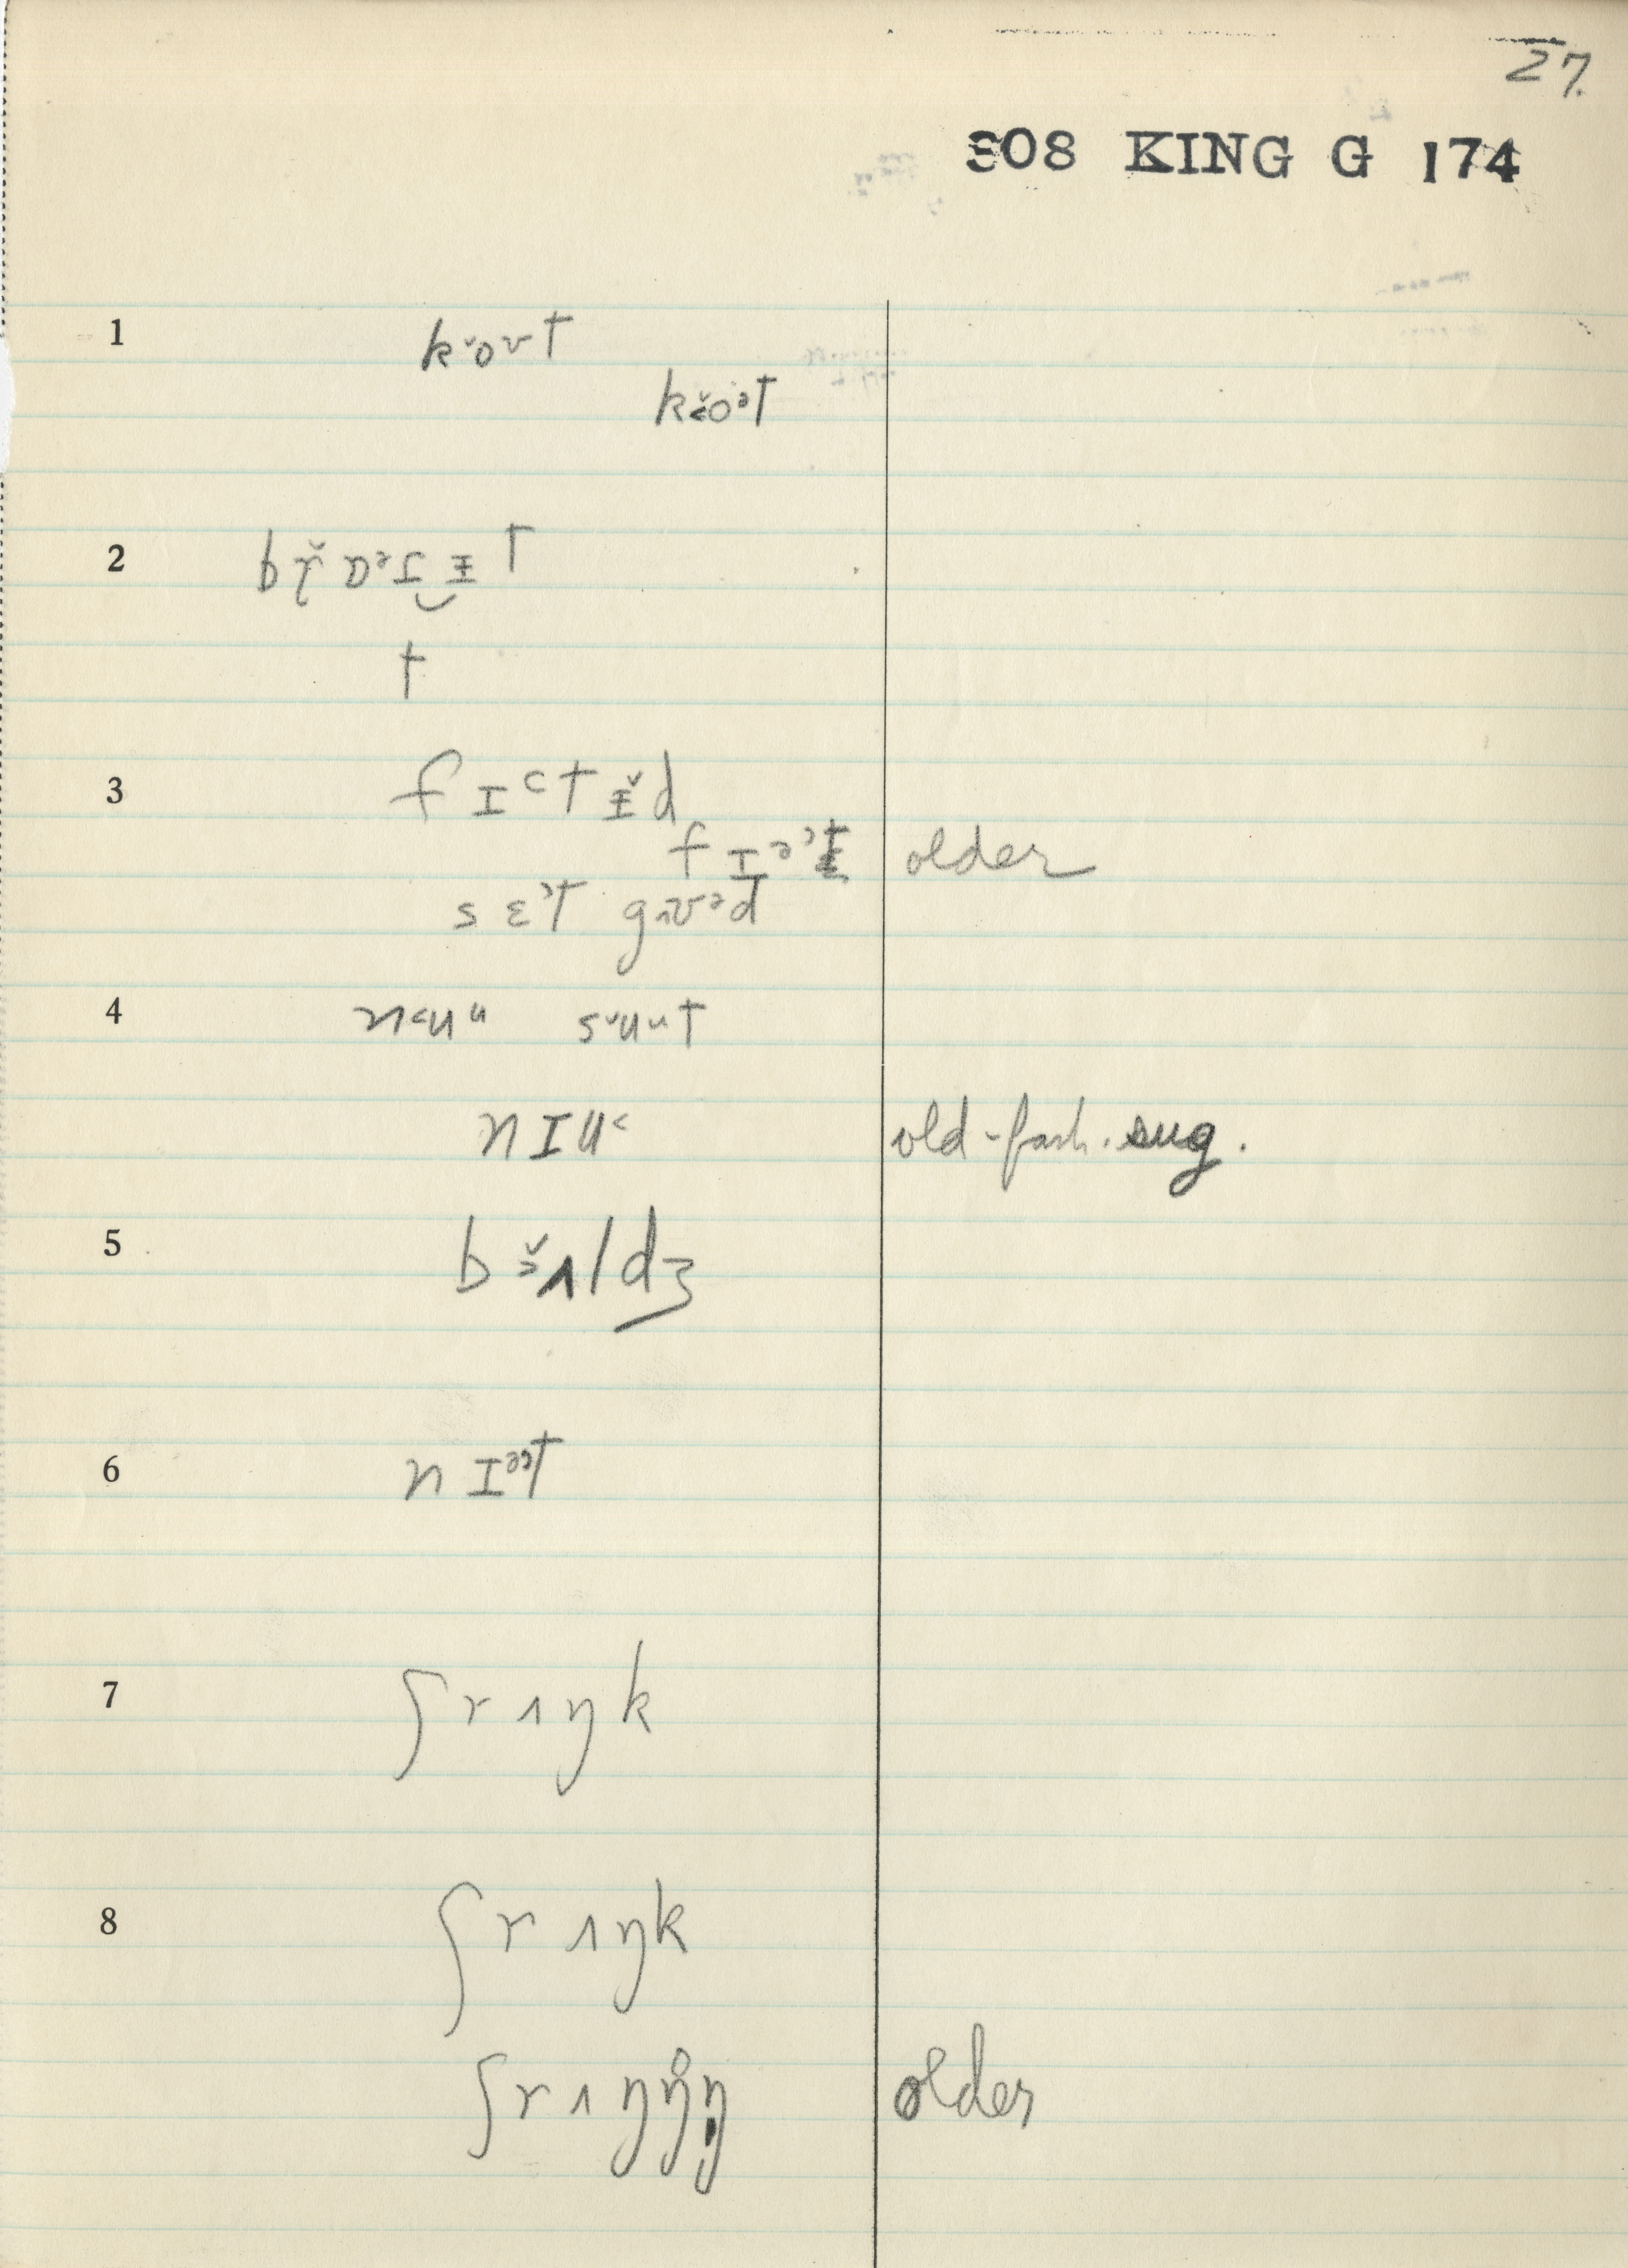 27.
308 KING G 174
1 k˅oʊt
k˂̌oət
2 bɽ̌ɒᵊɪ̯ɨt
t
3 fɪ˂tɨ̌d
fɪəʾt older
sɛʾt gʌʊəd
4 n˂uᵘ s˅uᵘt
nɪu˂ old-fash. sug.
5 b˃̌ʌldʒ
6 nɪᵊʾt
7 ʃrʌŋk
8 ʃrʌŋk
ʃrʌŋŋ̊ŋ older